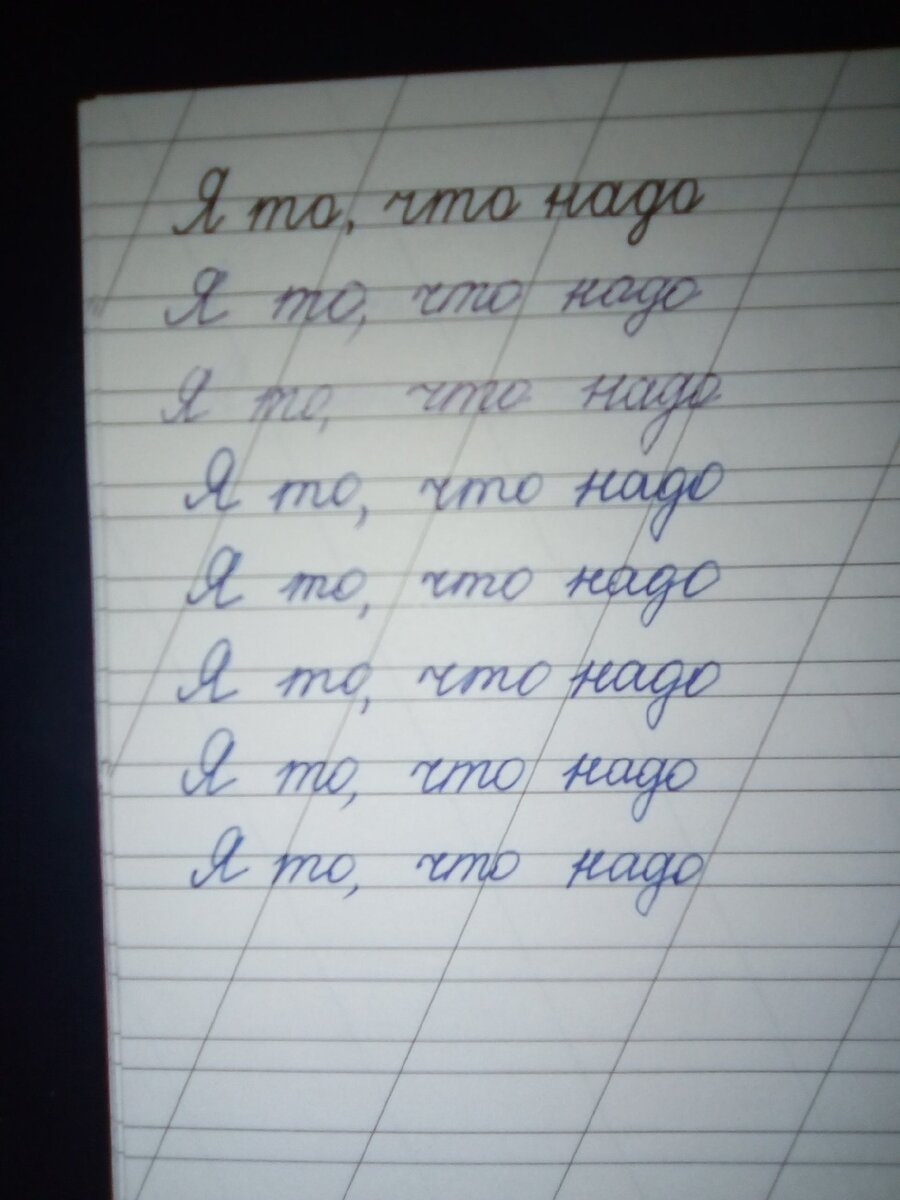 Я то, что надо
Я то, что надо
Я то, что надо
Я то, что надо
Я то, что надо
Я то, что надо
Я то, что надо
Я то, что надо